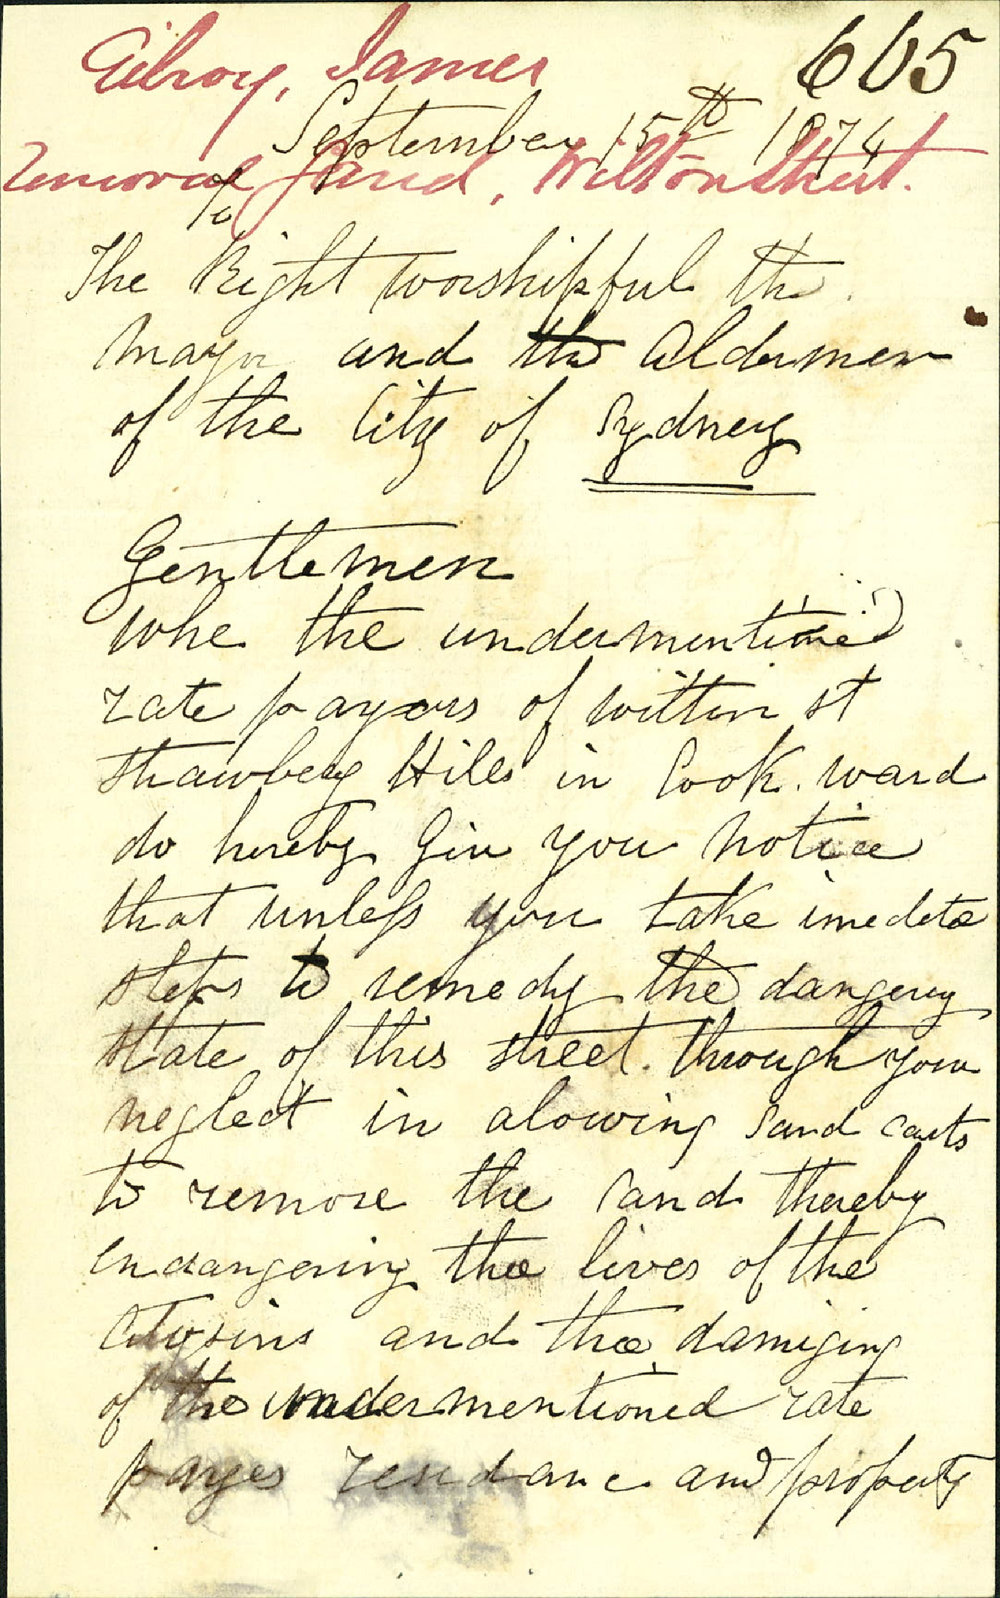 Gilroy, James 605
September 15th 1874
removal of Sand, Wilton Street.
To
The Right Worshipful the
Mayor and the Aldermen
of the City of Sydney
Gentlemen
Whe the undermentined
rate payers of Wilton st
Strawbery Hiles in Cook. ward
do hereby Give you Notice
that unless you take imedete
steps to remedy the dangerus
state of this street. through your
neglect in alowing sand carts
to remove the sand thereby
endangering the lives of the
and the damiging
of the undermentioned rate
payes residanc and property